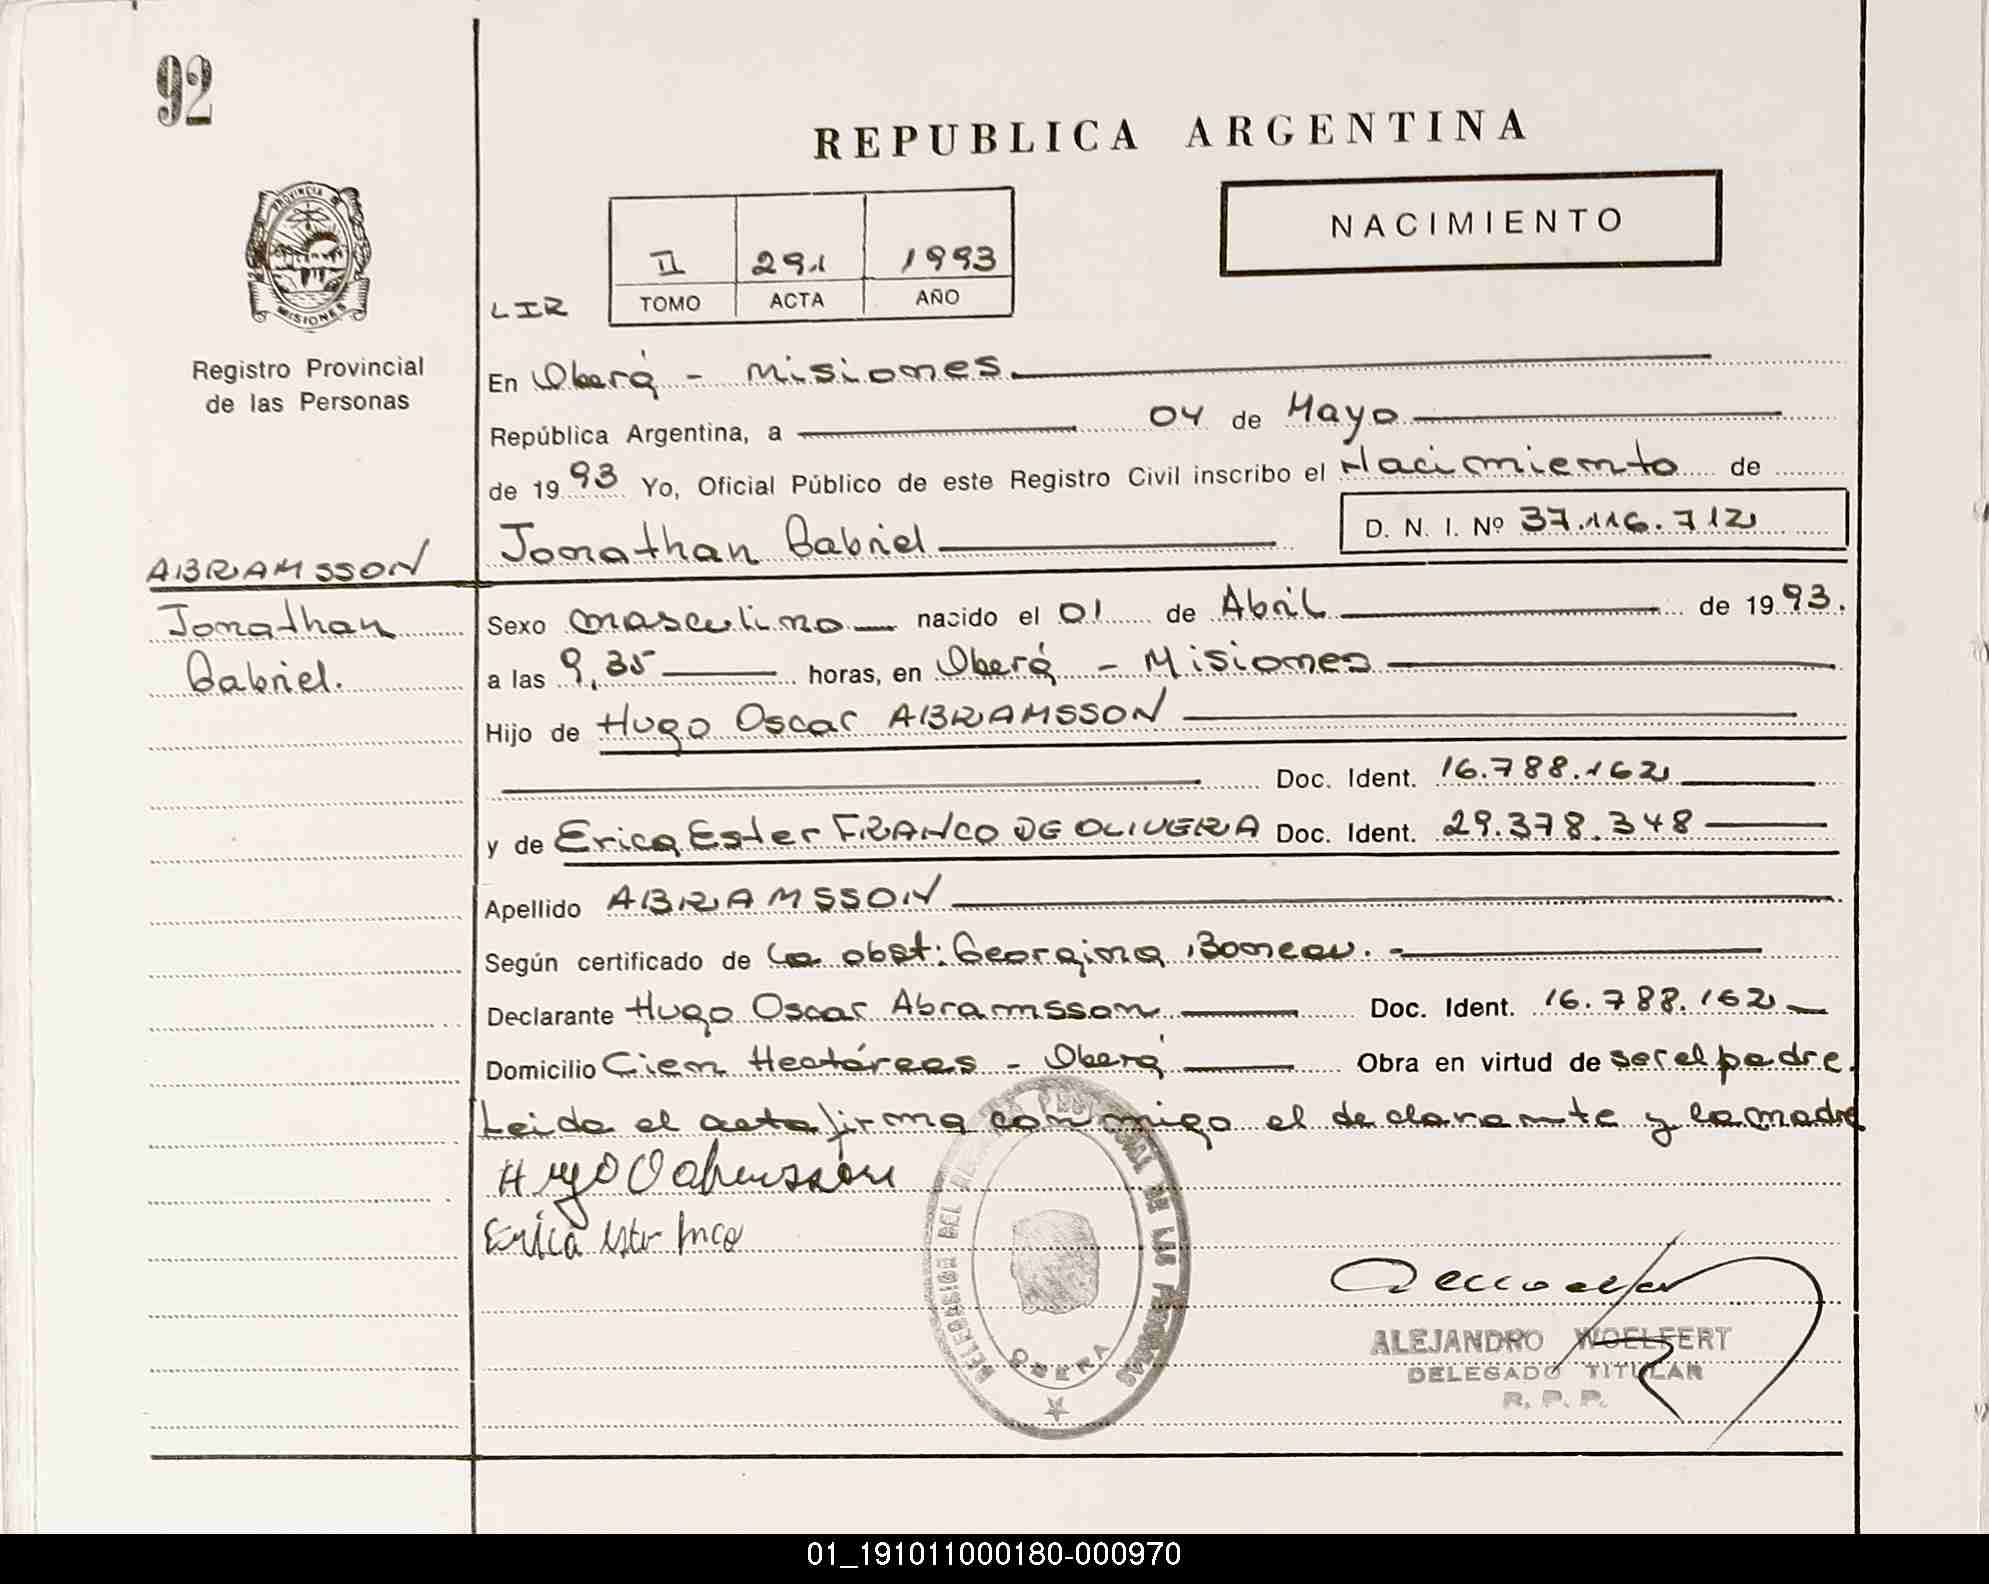 92
REPUBLICA ARGENTINA
PROVINCIA DE
MISIONES
NACIMIENTO
II 291 1993
LIR TOMO ACTA AÑO
Registro Provincial
de las Personas
En Oberá - Misiones
República Argentina, a 04 de Mayo
de 1993 Yo, Oficial Público de este Registro Civil inscribo el Nacimiento de
Jonathan Gabriel D. N. I. Nº 37.116.712
ABRAMSSON
Jonathan
Gabriel.
Sexo masculino nacido el 01 de Abril de 1993.
a las 9,35 horas, en Oberá - Misiones
Hijo de Hugo Oscar ABRAMSSON
Doc. Ident. 16.788.162
y de Erica Ester FRANCO DE OLIVERA Doc. Ident. 29.378.348
Apellido ABRAMSSON
Según certificado de la obst: Georgina Boneau.
Declarante Hugo Oscar Abramsson Doc. Ident. 16.788.162
Domicilio Cien Hectáreas - Oberá Obra en virtud de ser el padre.
Leida el acta firma conmigo el declarante y la madre
Erica Ester
DELEGACION DEL REGISTRO PROVINCIAL DE LAS PERSONAS
OBERA
ALEJANDRO WOELFERT
DELEGADO TITULAR
R. P. P.
01_191011000180-000970